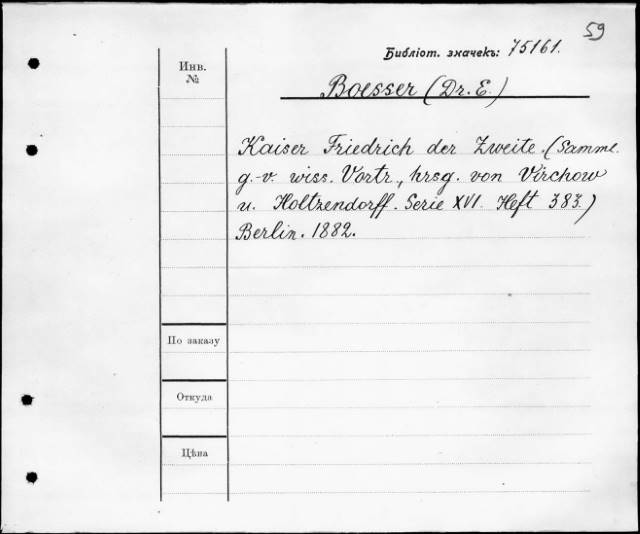 59
Библіот. значекъ: 75161.
Инв.
№
Boesser (Dr. E.)
Kaiser Friedrich der Zweite. (Samml.
g.-v. wiss. Vortr., hrsg. von Virchow
u. Holtzendorff. Serie XVI. Heft 383.)
Berlin. 1882.
По заказу
Откуда
Цѣна